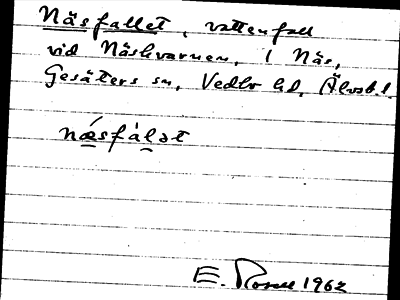 Näsfallet, vattenfall
vid Näskvarnen, 1 Näs,
Gesäters sn, Vedbo hd, Älvsb.l.
næ̀sfálət
E. 1962